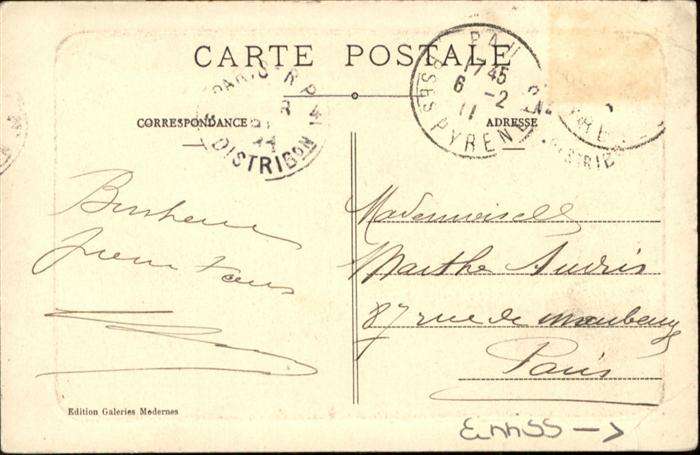 CARTE POSTALE
CORRESPONDANCE
ADRESSE
PARIS R.P.
DISTRIBON
PAU
17 45
6 -2
11
BSES PYRENEES
DISTRIB
Bonheur
pour tous
Mademoiselle
Marthe Audris
87 rue de Maubeuge
Paris
Edition Galeries Modernes